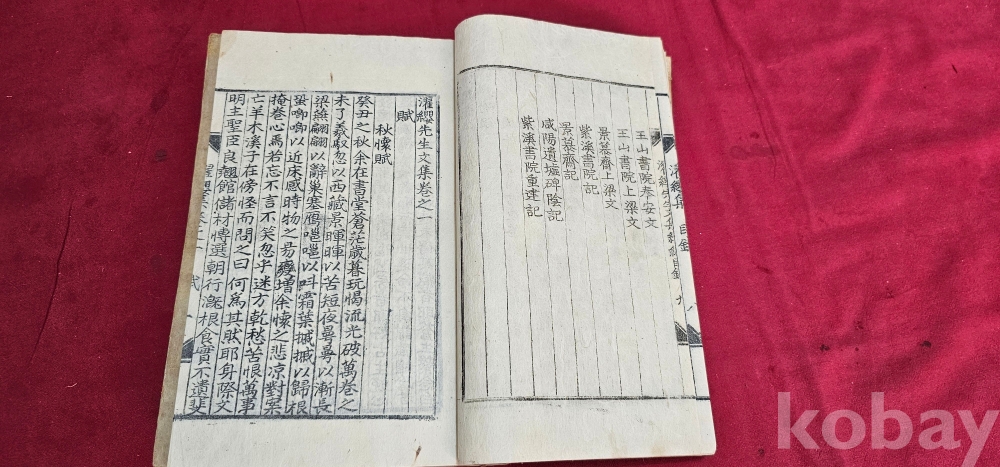 濯纓集 目錄
王山書院奉安文
王山書院上梁文
景慕齊上梁文
紫溪書院記
景慕齋記
咸陽遺墟碑陰記
紫溪書院重建記
濯纓先生文集卷之一
賦
秋懷賦
癸丑之秋余在書堂蒼茫歲暮玩愒流光破萬卷之
未了羲馭忽以西藏景暉暉以苦短夜曼曼以漸長
梁燕翩翩以辭巢塞鴈嗈嗈以叫霜葉摵摵以歸根
蛩喞喞以近床感時物之易變增余懷之悲凉對案
掩卷心焉若忘不言不笑忽乎迷方乾愁苦恨萬事
亡羊木溪子在傍怪而問之曰何爲其肰耶身際文
明主聖臣良翹館儲材愽選朝行漑根食實不遺斐
濯纓集卷之一 賦
kobay